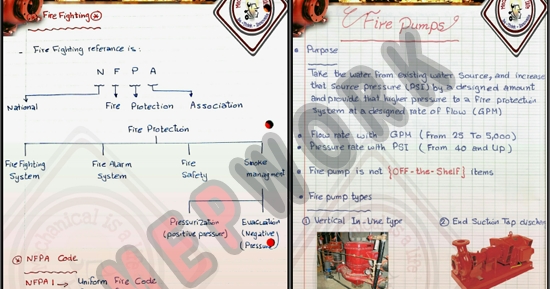 Fire Fighting
- Fire Fighting referance is:
N F P A
National Fire Protection Association
Fire Protection
Fire Fighting System
Fire Alarm System
Fire Safety
Smoke managment
Pressurization (positive pressure)
Evacuation (Negative Pressure)
NFPA Code
NFPA 1 → Uniform Fire Code
Fire Pumps
Purpose
Take the water From existing water Source, and increase
that source pressure (PSI) by a designed amount
and provide that higher pressure to a fire protection
system at a designed rate of Flow (GPM)
Flow rate with GPM (From 25 To 5,000)
Pressure rate with PSI (From 40 and Up)
Fire pump is not {OFF-the-Shelf} items
Fire pump types
① Vertical In-Line type
② End Suction Top discharge
MEPWORK